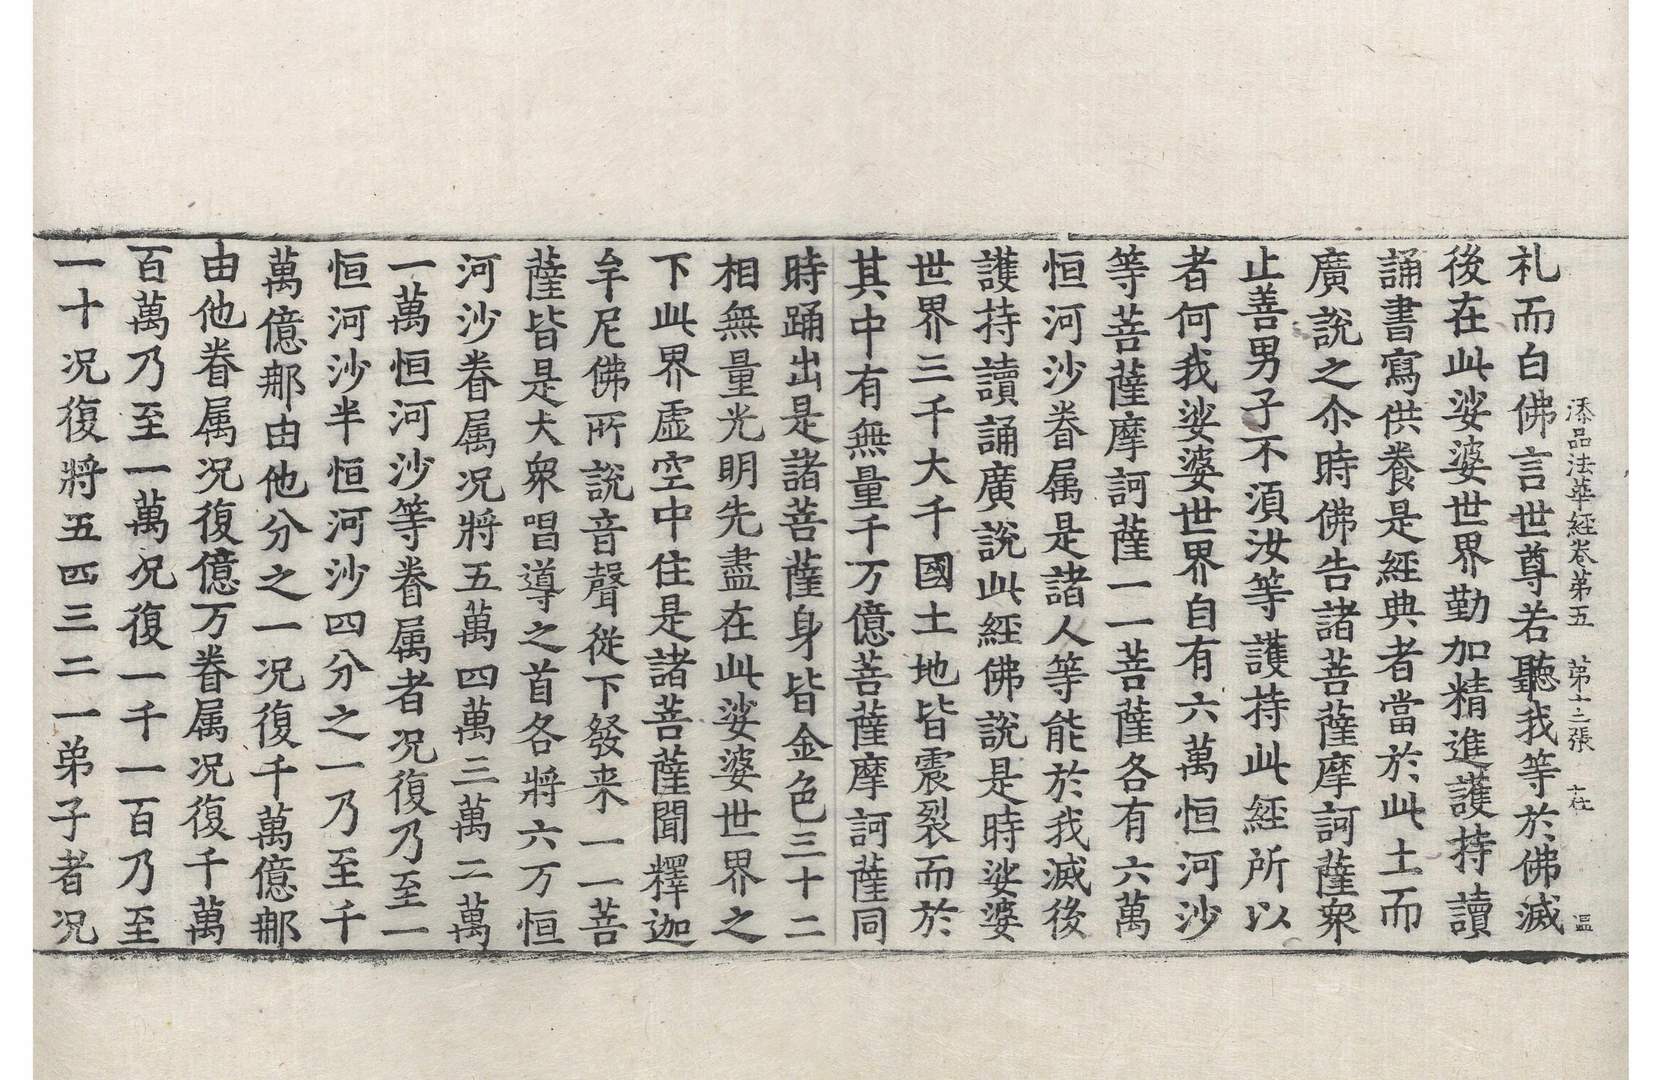 添品法華經卷第五　第十二張　温
礼而白佛言世尊若聽我等於佛滅
後在此娑婆世界勤加精進護持讀
誦書寫供養是經典者當於此土而
廣說之尒時佛告諸菩薩摩訶薩衆
止善男子不須汝等護持此經所以
者何我娑婆世界自有六萬恒河沙
等菩薩摩訶薩一一菩薩各有六萬
恒河沙眷属是諸人等能於我滅後
護持讀誦廣說此經佛說是時娑婆
世界三千大千國土地皆震裂而於
其中有無量千万億菩薩摩訶薩同
時踊出是諸菩薩身皆金色三十二
相無量光明先盡在此娑婆世界之
下此界虛空中住是諸菩薩聞釋迦
牟尼佛所說音聲從下發来一一菩
薩皆是大衆唱導之首各將六万恒
河沙眷属况將五萬四萬三萬二萬
一萬恒河沙等眷属者况復乃至一
恒河沙半恒河沙四分之一乃至千
萬億那由他分之一况復千萬億那
由他眷属况復億万眷属况復千萬
百萬乃至一萬况復一千一百乃至
一十况復將五四三二一弟子者况